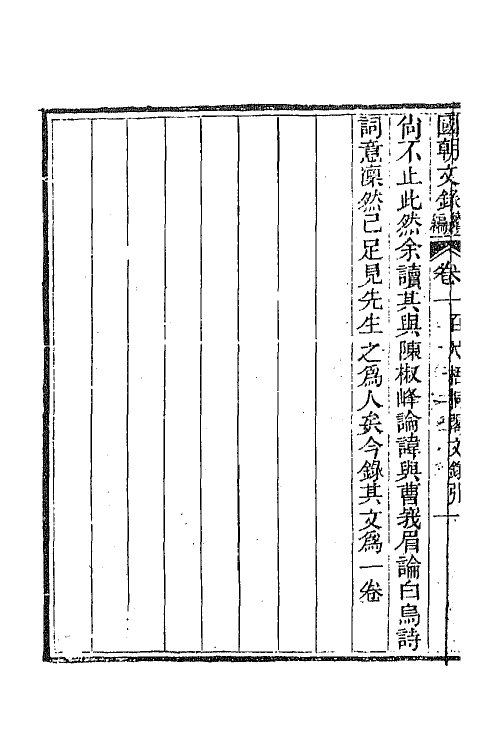 國朝文錄續編 卷一 百尺梧桐閣文錄引 一
尙不止此然余讀其與陳椒峰論諱與曹峩眉論白烏詩
詞意凜然已足見先生之爲人矣今錄其文爲一卷